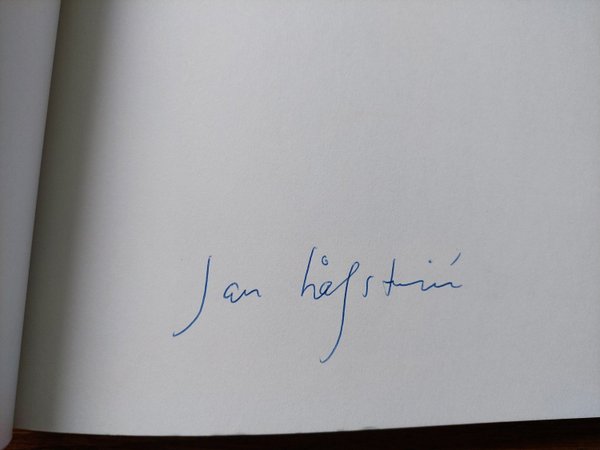 Jan Håfström